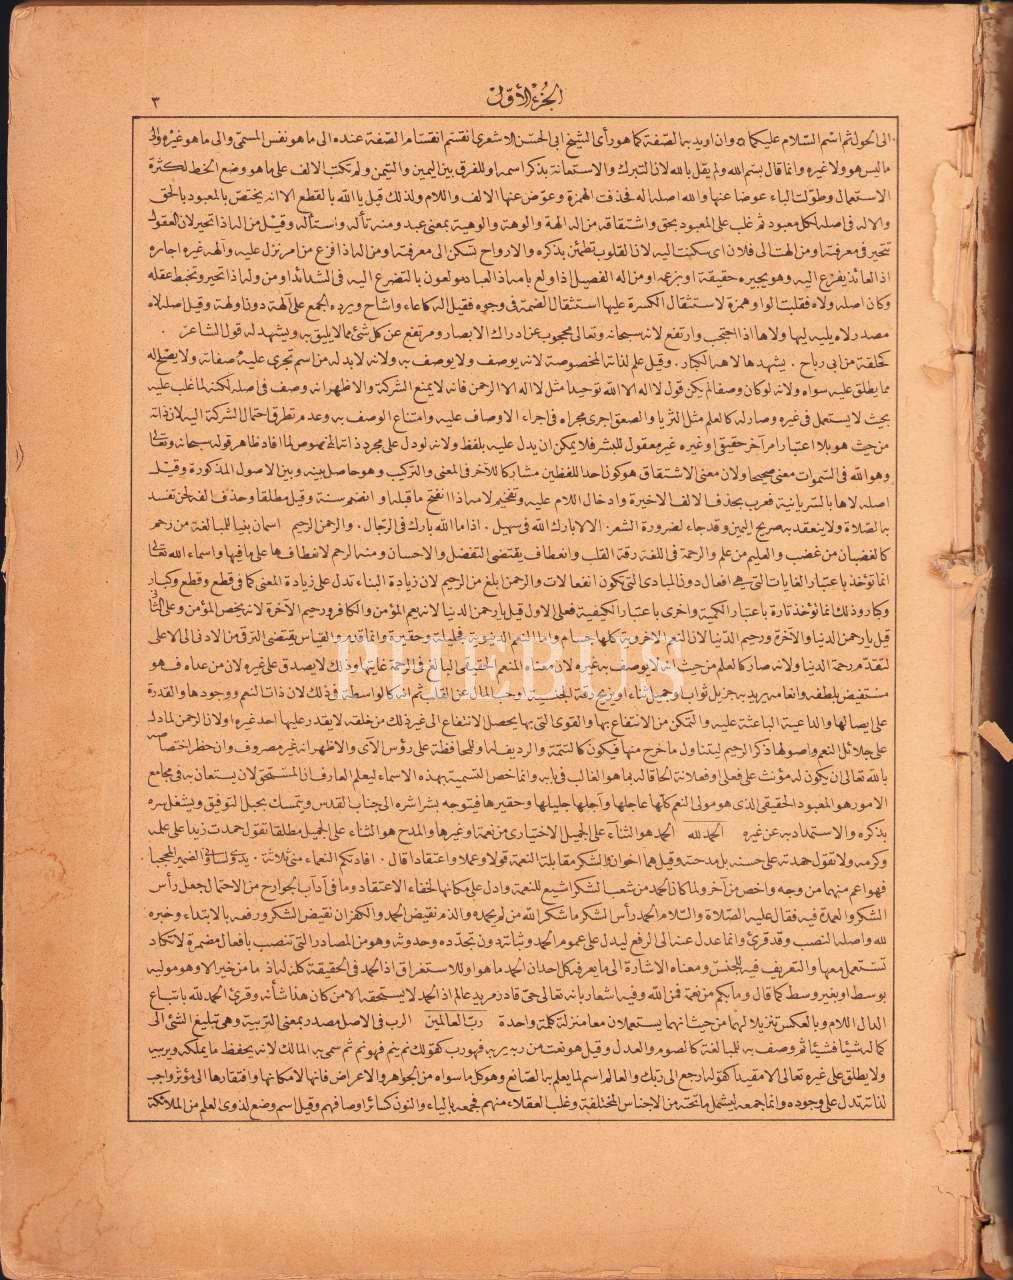 الجزء الأول
٣
الى الحول ثم اسم السلام عليكما ٥ وان اريد به الصفة كما هو رأى الشيخ ابى الحسن الاشعرى انقسم انقسام الصفة عنده الى ما هو نفس المسمى والى ما هو غيره والى
ما ليس هو ولا غيره وانما قال بسم الله ولم يقل بالله لان التبرك والاستعانة بذكر اسمه او للفرق بين اليمين والتيمن ولم تكتب الالف على ما هو وضع الخط لكثرة
الاستعمال وطولت الباء عوضا عنها والله اصله اله فحذفت الهمزة وعوض عنها الالف واللام ولذلك قيل يا الله بالقطع الا انه يختص بالمعبود بالحق
والاله فى اصله لكل معبود ثم غلب على المعبود بحق واشتقاقه من اله الهة والوهة والوهية بمعنى عبد ومنه تأله واستأله وقيل من اله اذا تحير لان العقول
تتحير فى معرفته او من الهت الى فلان اى سكنت اليه لان القلوب تطمئن بذكره والارواح تسكن الى معرفته او من اله اذا فزع من امر نزل عليه وآلهه غيره اجاره
اذ العائذ يفزع اليه وهو يجيره حقيقة او بزعمه او من اله الفصيل اذا ولع بامه اذ العباد مولعون بالتضرع اليه فى الشدائد او من وله اذا تحير وتخبط عقله
وكان اصله ولاه فقلبت الواو همزة لاستثقال الكسرة عليها استثقال الضمة فى وجوه فقيل اله كاعاء واشاح ويرده الجمع على آلهة دون اولهة وقيل اصله لاه
مصدر لاه يليه ليها ولاها اذا احتجب وارتفع لانه سبحانه وتعالى محجوب عن ادراك الابصار ومرتفع عن كل شئ مما لا يليق به ويشهد له قول الشاعر .
كحلفة من ابى رباح . يشهدها لاهه الكبار . وقيل علم لذاته المخصوصة لانه يوصف ولا يوصف به ولانه لابد له من اسم تجرى عليه صفاته ولا يصلح له
مما يطلق عليه سواه ولانه لو كان وصفا لم يكن قول لا اله الا الله توحيدا مثل لا اله الا الرحمن فانه لا يمنع الشركة والاظهر انه وصف فى اصله لكنه لما غلب عليه
بحيث لا يستعمل فى غيره وصار له كالعلم مثل الثريا والصعق اجرى مجراه فى اجراء الاوصاف عليه وامتناع الوصف به وعدم تطرق احتمال الشركة اليه لان ذاته
من حيث هو بلا اعتبار امر آخر حقيقى او غيره غير معقول للبشر فلا يمكن ان يدل عليه بلفظ ولانه لو دل على مجرد ذاته المخصوص لما افاد ظاهر قوله سبحانه وتعالى
وهو الله فى السموات معنى صحيحا ولان معنى الاشتقاق هو كون احد اللفظين مشاركا للآخر فى المعنى والتركيب وهو حاصل بينه وبين الاصول المذكورة وقيل
اصله لاها بالسريانية فعرب بحذف الالف الاخيرة وادخال اللام عليه وتفخيم لامه اذا انفتح ما قبله او انضم سنة وقيل مطلقا وحذف الفه لحن تفسد
به الصلاة ولا ينعقد به صريح اليمين وقد جاء لضرورة الشعر: الا لا بارك الله فى سهيل . اذا ما الله بارك فى الرجال . والرحمن الرحيم اسمان بنيا للمبالغة من رحم
كالغضبان من غضب والعليم من علم والرحمة فى اللغة رقة القلب وانعطاف يقتضى التفضل والاحسان ومنه الرحم لانعطافها على ما فيها واسماء الله تعالى
انما تؤخذ باعتبار الغايات التى هى افعال دون المبادى التى تكون انفعالات والرحمن ابلغ من الرحيم لان زيادة البناء تدل على زيادة المعنى كما فى قطع وقطع وكبار
وكبار وذلك انما تؤخذ تارة باعتبار الكمية واخرى باعتبار الكيفية فعلى الاول قيل يا رحمن الدنيا لانه يعم المؤمن والكافر ورحيم الآخرة لانه يخص المؤمن وعلى الثانى
قيل يا رحمن الدنيا والآخرة ورحيم الدنيا لان النعم الاخروية كلها جسام واما النعم الدنيوية فجليلة وحقيرة وانما قدم والقياس يقتضى الترقى من الادنى الى الاعلى
لتقدم رحمة الدنيا ولانه صار كالعلم من حيث انه لا يوصف به غيره لان معناه المنعم الحقيقى البالغ فى الرحمة غايتها وذلك لا يصدق على غيره لان من عداه فهو
مستفيض بلطفه وانعامه يريد به جزيل ثواب او جميل ثناء او يزيح رقة الجنسية او حب المال عن القلب ثم انه كالواسطة فى ذلك لان ذات النعم ووجودها والقدرة
على ايصالها والداعية الباعثة عليه والتمكن من الانتفاع بها والقوى التى بها يحصل الانتفاع الى غير ذلك من خلقه لا يقدر عليها احد غيره او لان الرحمن لما دل
على جلائل النعم واصولها ذكر الرحيم ليتناول ما خرج منها فيكون كالتتمة والرديف له وللمحافظة على رؤس الآى والاظهر انه غير مصروف وان حظر اختصاصه
بالله تعالى ان يكون له مؤنث على فعلى او فعلانة الحاقا له بما هو الغالب فى بابه وانما خص التسمية بهذه الاسماء ليعلم العارف ان المستحق لان يستعان به فى مجامع
الامور هو المعبود الحقيقى الذى هو مولى النعم كلها عاجلها وآجلها جليلها وحقيرها فيتوجه بشراشره الى جناب القدس ويتمسك بحبل التوفيق ويشغل سره
بذكره والاستمداد به عن غيره الحمد لله الحمد هو الثناء على الجميل الاختيارى من نعمة وغيرها والمدح هو الثناء على الجميل مطلقا تقول حمدت زيدا على علمه
وكرمه ولا تقول حمدته على حسنه بل مدحته وقيل هما اخوان والشكر مقابلة النعمة قولا وعملا واعتقادا قال . افادتكم النعماء منى ثلاثة . يدى ولسانى والضمير المحجبا .
فهو اعم منهما من وجه واخص من آخر ولما كان الحمد من شعب الشكر اشيع للنعمة وادل على مكانها لخفاء الاعتقاد وما فى آداب الجوارح من الاحتمال جعل رأس
الشكر والعمدة فيه فقال عليه الصلاة والسلام الحمد رأس الشكر ما شكر الله من لم يحمده والذم نقيض الحمد والكفران نقيض الشكر ورفعه بالابتداء وخبره
لله واصله النصب وقد قرئ به وانما عدل عنه الى الرفع ليدل على عموم الحمد وثباته دون تجدده وحدوثه وهو من المصادر التى تنصب بافعال مضمرة لا تكاد
تستعمل معها والتعريف فيه للجنس ومعناه الاشارة الى ما يعرفه كل احد ان الحمد ما هو او للاستغراق اذ الحمد فى الحقيقة كله له اذ ما من خير الا وهو موليه
بوسط او بغير وسط كما قال وما بكم من نعمة فمن الله وفيه اشعار بانه تعالى حى قادر مريد عالم اذ الحمد لا يستحقه الا من كان هذا شأنه وقرئ الحمد لله باتباع
الدال اللام وبالعكس تنزيلا لهما من حيث انهما يستعملان معا منزلة كلمة واحدة رب العالمين الرب فى الاصل مصدر بمعنى التربية وهى تبليغ الشئ الى
كماله شيئا فشيئا ثم وصف به للمبالغة كالصوم والعدل وقيل هو نعت من ربه يربه فهو رب كقولك نم ينم فهو نم ثم سمى به المالك لانه يحفظ ما يملكه ويربيه
ولا يطلق على غيره تعالى الا مقيدا كقوله ارجع الى ربك والعالم اسم لما يعلم به الصانع وهو كل ما سواه من الجواهر والاعراض فانها لامكانها وافتقارها الى مؤثر واجب
لذاته تدل على وجوده وانما جمعه ليشمل ما تحته من الاجناس المختلفة وغلب العقلاء منهم فجمعه بالياء والنون كسائر اوصافهم وقيل اسم وضع لذوى العلم من الملائكة
PHEBUS